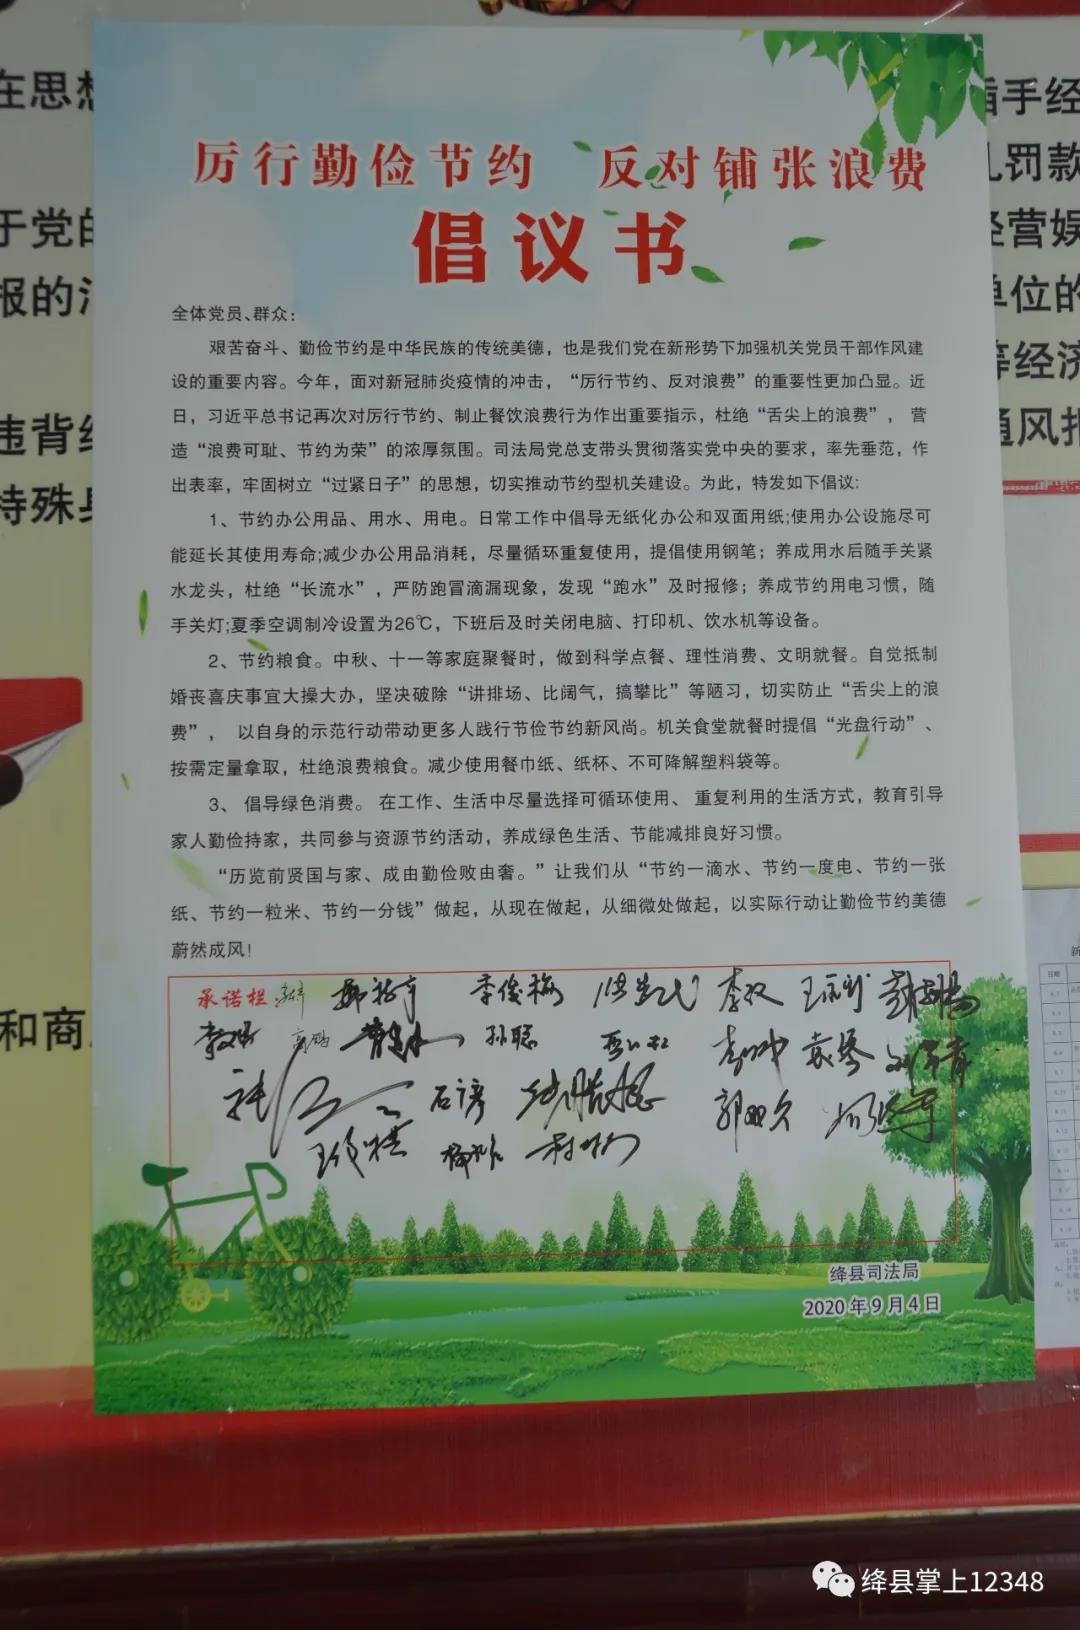 厉行勤俭节约 反对铺张浪费
倡议书
全体党员、群众：
艰苦奋斗、勤俭节约是中华民族的传统美德，也是我们党在新形势下加强机关党员干部作风建
设的重要内容。今年，面对新冠肺炎疫情的冲击，“厉行节约、反对浪费”的重要性更加凸显。近
日，习近平总书记再次对厉行节约、制止餐饮浪费行为作出重要指示，杜绝“舌尖上的浪费”， 营
造“浪费可耻、节约为荣”的浓厚氛围。司法局党总支带头贯彻落实党中央的要求，率先垂范，作
出表率，牢固树立“过紧日子”的思想，切实推动节约型机关建设。为此，特发如下倡议:
1、节约办公用品、用水、用电。日常工作中倡导无纸化办公和双面用纸;使用办公设施尽可
能延长其使用寿命;减少办公用品消耗，尽量循环重复使用，提倡使用钢笔；养成用水后随手关紧
水龙头，杜绝“长流水”，严防跑冒滴漏现象，发现“跑水”及时报修；养成节约用电习惯，随
手关灯;夏季空调制冷设置为26℃，下班后及时关闭电脑、打印机、饮水机等设备。
2、节约粮食。中秋、十一等家庭聚餐时，做到科学点餐、理性消费、文明就餐。自觉抵制
婚丧喜庆事宜大操大办，坚决破除“讲排场、比阔气，搞攀比”等陋习，切实防止“舌尖上的浪
费”， 以自身的示范行动带动更多人践行节俭节约新风尚。机关食堂就餐时提倡“光盘行动”、
按需定量拿取，杜绝浪费粮食。减少使用餐巾纸、纸杯、不可降解塑料袋等。
3、 倡导绿色消费。 在工作、生活中尽量选择可循环使用、 重复利用的生活方式，教育引导
家人勤俭持家，共同参与资源节约活动，养成绿色生活、节能减排良好习惯。
“历览前贤国与家、成由勤俭败由奢。”让我们从“节约一滴水、节约一度电、节约一张
纸、节约一粒米、节约一分钱”做起，从现在做起，从细微处做起，以实际行动让勤俭节约美德
蔚然成风!
承诺栏: 李俊梅
孙聪
石彦
绛县司法局
2020年9月4日
在思想
于党的
违背
特殊
和商
插手经
罚款
经营娱
单位的
等经济
通风报
绛县掌上12348